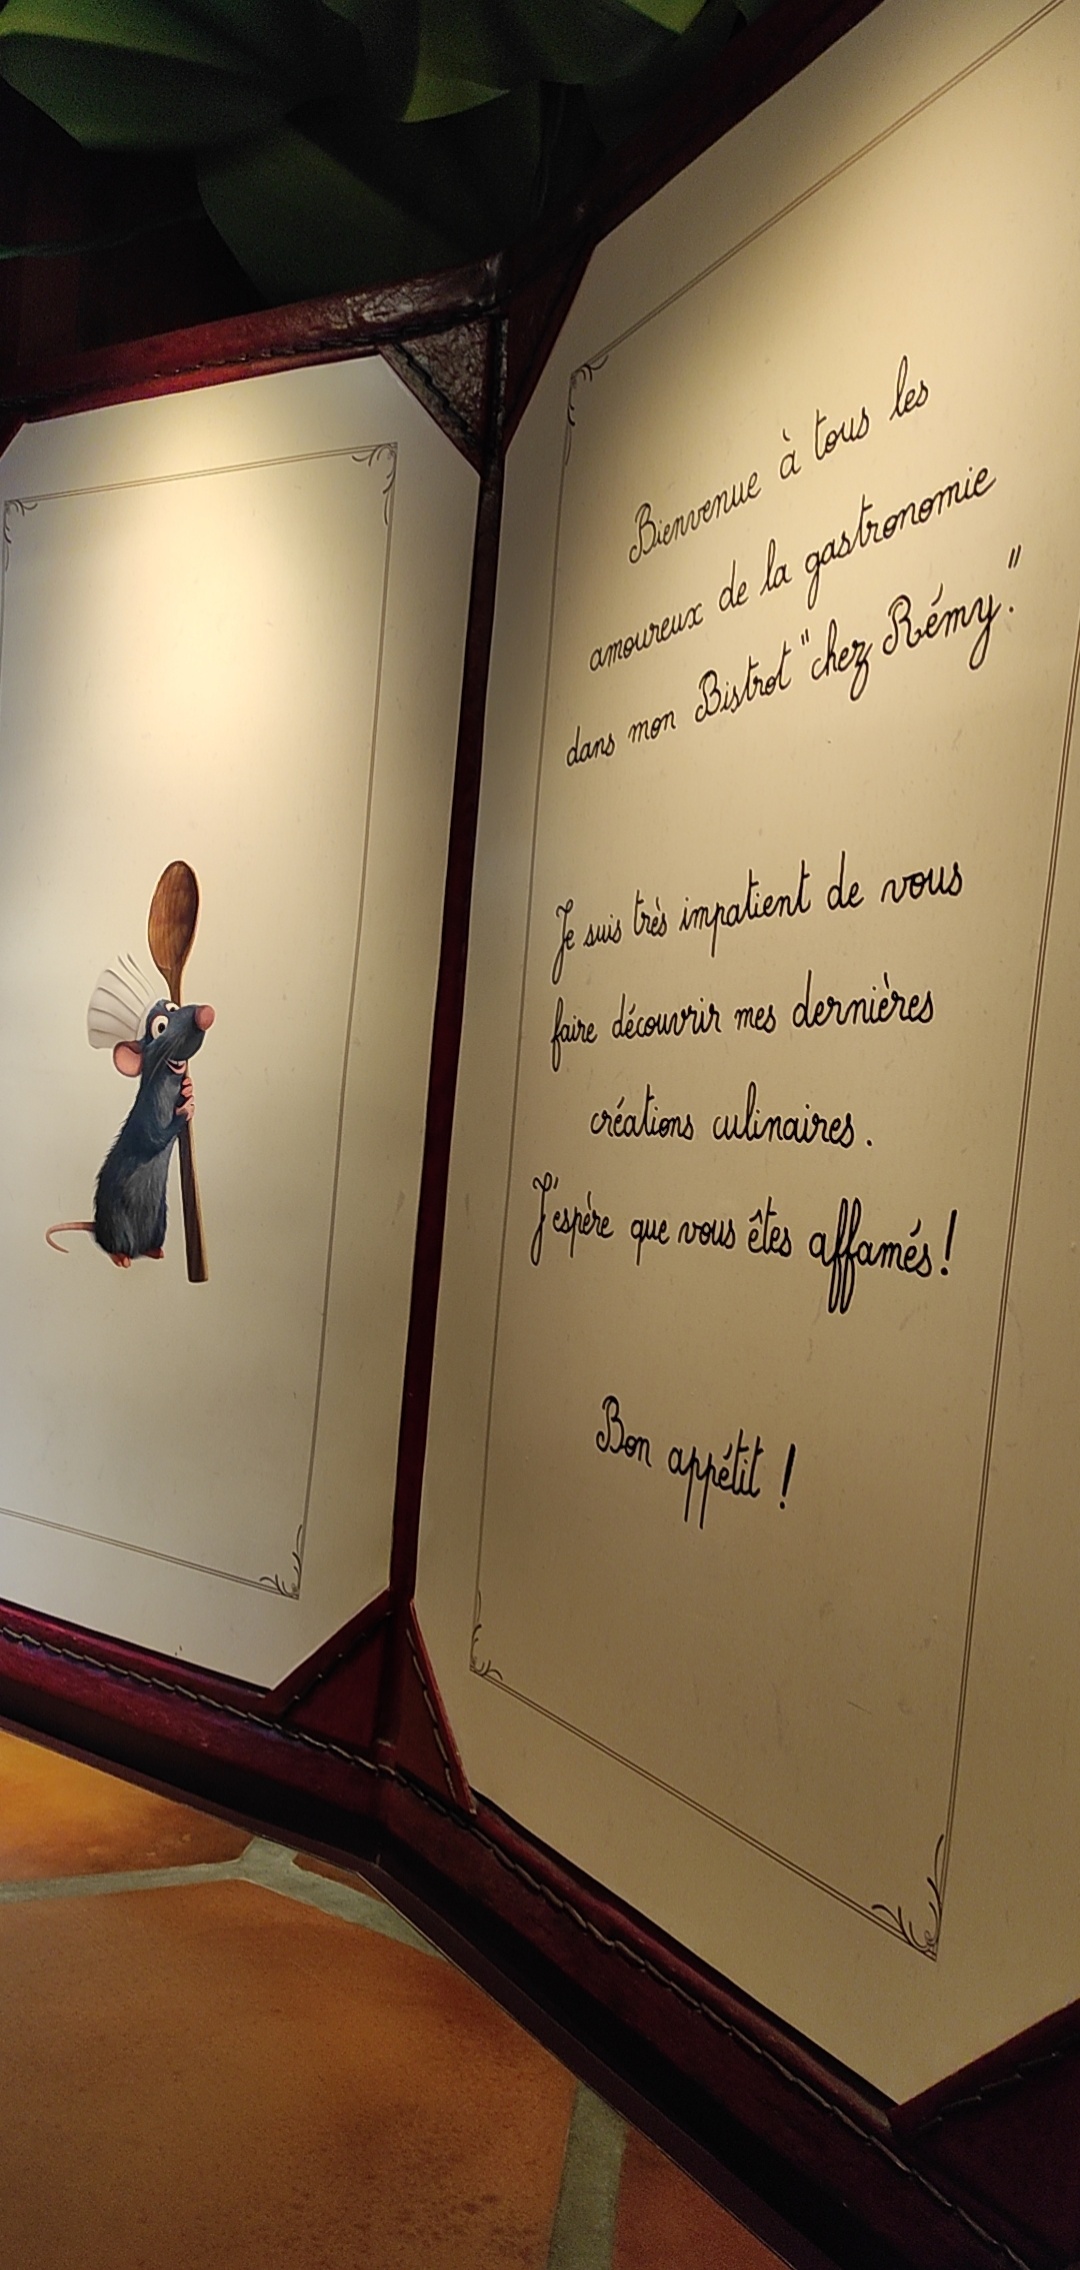 Bienvenue à tous les
amoureux de la gastronomie
dans mon Bistrot "chez Rémy."
Je suis très impatient de vous
faire découvrir mes dernières
créations culinaires.
J'espère que vous êtes affamés!
Bon appétit !